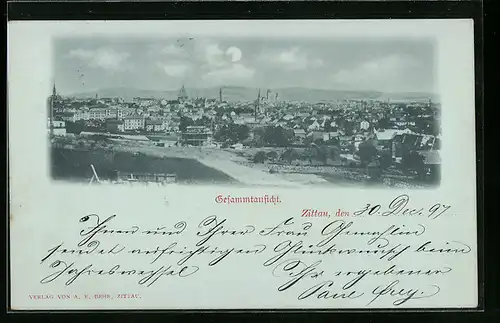 Gesammtansicht.
Zittau, den 30 Dec. 97
Ihnen und Ihrer Frau Gemahlin
sendet aufrichtigen Glückwunsch beim
Jahreswechsel Ihr ergebener
Paul
VERLAG VON A. E. ZITTAU.